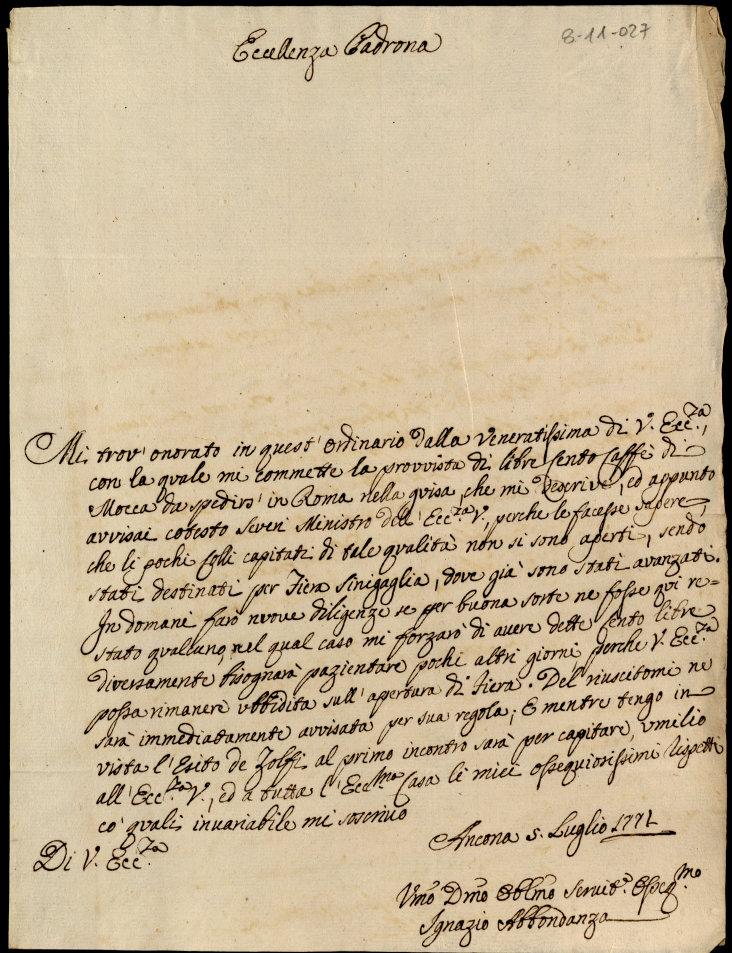 8-11-027
Eccellenza Padrona
Mi trov' onorato in quest' ordinario dalla Veneratissima di V. Ecc.za,
con la quale mi commette la provvista di libre Cento Caffè di
Mocca da spedirs' in Roma nella guisa, che mi descrive, ed appunto
avvisai cotesto Severi Ministro dell' Ecc.za V., perche le facesse sapere,
che li pochi Colli capitati di tele qualità non si sono aperti, sendo
stati destinati per Fiera Sinigaglia, dove già sono stati avanzati.
In domani farò nuove diligenze se per buona sorte ne fosse qui re=
stato qualcuno, nel qual caso mi forzarò di avere dette Cento libre
diversamente bisognarà pazientare pochi altri giorni perche V. Ecc.za
possa rimanere ubbidita sull' apertura di Fiera. Del riuscitomi ne
sarà immediatamente avvisata per sua regola; E mentre tengo in
vista l'Esito de Zolfi al primo incontro sarà per capitare, umilio
all' Ecc.za V., ed a tutta l' Ecc.ma Casa li miei ossequiosissimi rispetti
co' quali invariabile mi soscrivo
Di V. Ecc.za
Ancona 5. Luglio 1771
Umo Dmo Obblmo Servit.e Osseq.mo
Ignazio Abbondanza